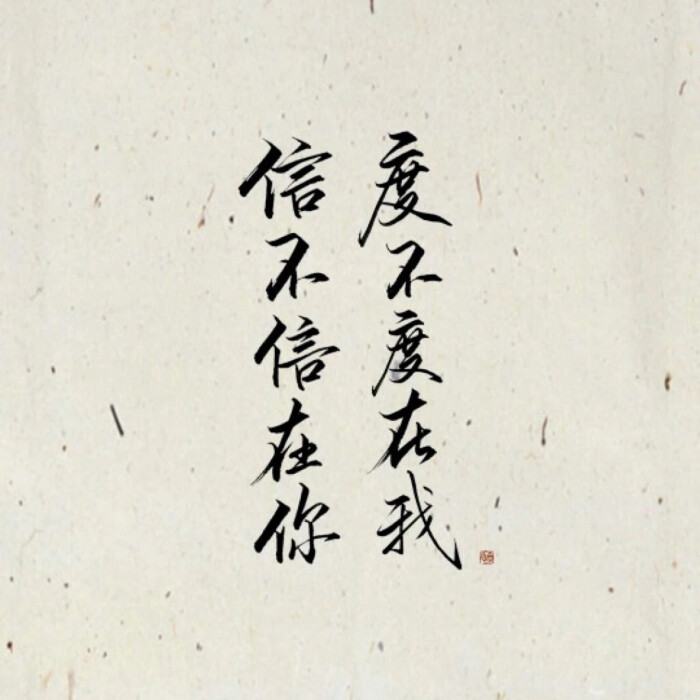 度不度在我
信不信在你